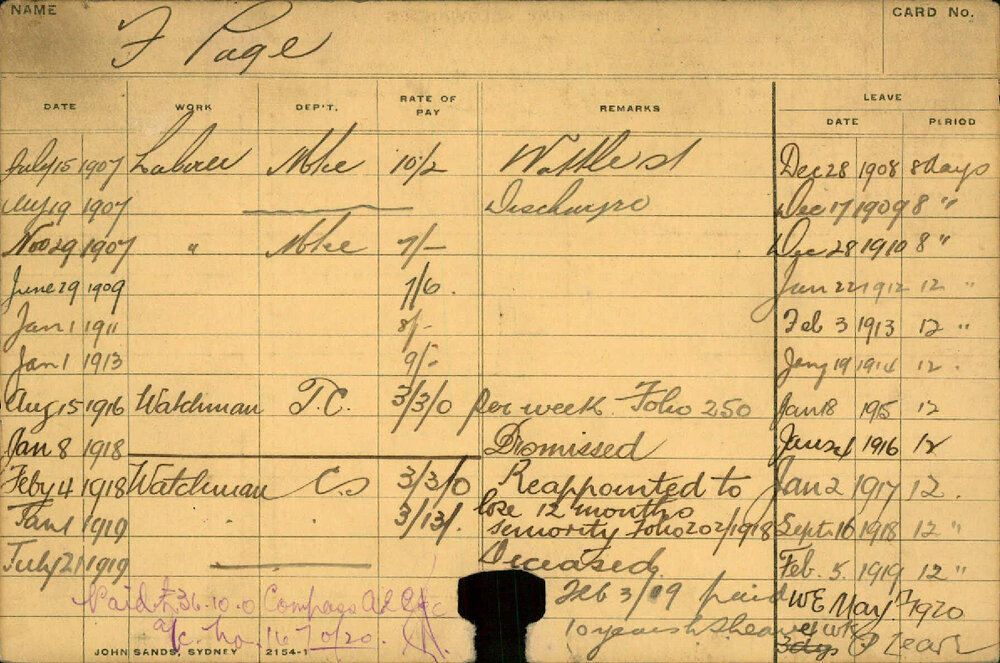 NAME F Page CARD No.
DATE WORK DEP'T. RATE OF PAY REMARKS LEAVE DATE PERIOD
July 15 1907 Labourer Mtce 10/2 Wattle st Dec 28 1908 8 days
1907 Discharged Dec 17 1909 8 "
Nov 29 1907 " Mtce 7/- Dec 28 1910 8 "
June 29 1909 7/6. Jan 22 1912 12 "
Jan 1 1911 8/- Feb 3 1913 12 "
Jan 1 1913 9/- Jany 19 1914 12 .
Aug 15 1916 Watchman T.C. 3/3/0 per week. Folio 250 Jan 18 1915 12
Jan 8 1918 Dismissed Jan 24 1916 12
Feby 4 1918 Watchman C.S 3/3/0 Reappointed to Jan 2 1917 12 .
lose 12 months
Jan 1 1919 " " 3/13/. seniority Folio 202/1918 Sept. 16 1918 12 "
July 21 1919 Deceased. Feb. 5. 1919 12 "
Paid £36.10.0 Feb 3/19 paid WE May 1920
a/c. No. 167 of 20. 10 years
3 dys
JOHN SANDS, SYDNEY 2154-1